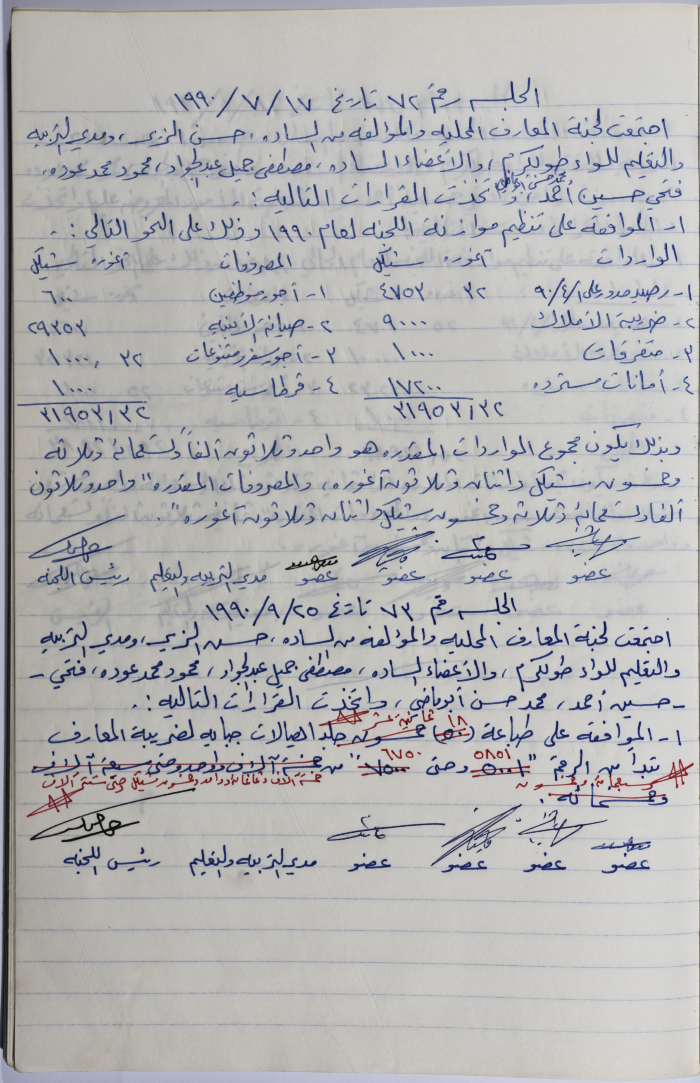 الجلسه رقم ٧٢ تاريخ ١٧/٧/١٩٩٠
اجتمعت لجنة المعارف المحليه والمؤلفه من الساده، حسن الزير، ومدير التربيه
والتعليم للواء طولكرم، والأعضاء الساده، مصطفى جميل عبد الجواد، محمود محمد عوده،
فتحي حسين أحمد، محمد حسن واتخذت القرارات التاليه :.
١- الموافقة على تنظيم موازنة اللجنه لعام ١٩٩٠ وذلك على النحو التالي :.
الواردات أغوره شيكل المصروفات أغوره شيكل
١- رصيد مدور على ٩٠/٤/١ ٣٢ ٤٧٥٣ ١- أجور موظفين ٦٠٠
٢- ضريبة الأملاك ٩٠٠٠ ٢- صيانة الأبنيه ٢٩٣٥٣
٣- متفرقات ١٠٠٠ ٣- أجور سفر ومتنوعات ٣٢ ١٠٠٠
٤- أمانات مسترده ١٧٢٠٠ ٤- قرطاسيه ١٠٠٠
٣١٩٥٣/٣٢ ٣١٩٥٣/٣٢
وبذلك يكون مجموع الواردات المقدره هو واحد وثلاثون ألفاً وتسعمائة وثلاثة
وخمسون شيكل واثنان وثلاثون أغوره، والمصروفات المقدره "واحد وثلاثون
ألفا وتسعمائة وثلاثة وخمسون شيكل واثنان وثلاثون أغوره".
عضو عضو عضو عضو مدير التربيه والتعليم رئيس اللجنه
الجلسه رقم ٧٣ تاريخ ٢٥/٩/١٩٩٠
اجتمعت لجنة المعارف المحليه والمؤلفه من الساده، حسن الزير، ومدير التربيه
والتعليم للواء طولكرم، والأعضاء الساده، مصطفى جميل عبد الجواد، محمود محمد عوده، فتحي -
- حسين أحمد، محمد حسن أبو ياضي، واتخذت القرارات التاليه :.
١٨ ثمانية عشر
١- الموافقة على طباعة (٥٠) خمسون جلد ايصالات جبايه لضريبة المعارف
٥٨٥١ ٦٧٥٠
تبدأ من الرقم "٥٠٠١ وحتى ٧٥٠٠" من خمسة آلاف وواحد وحتى سبعة آلاف
خمسة آلاف وثمانمائة وواحد وخمسون شيكل وحتى ستة آلاف
وسبعمائة وخمسون
وخمسمائه.
عضو عضو عضو عضو مدير التربيه والتعليم رئيس اللجنه